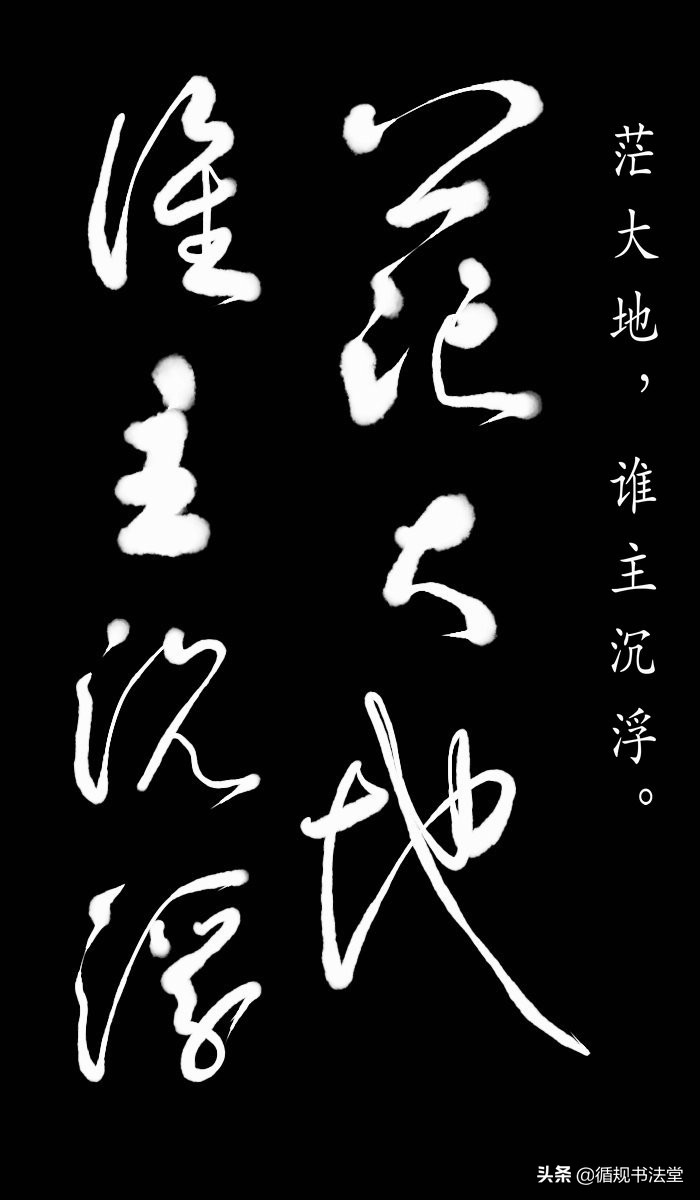 茫大地，谁主沉浮。
茫大地
谁主沉浮
头条 @循规书法堂